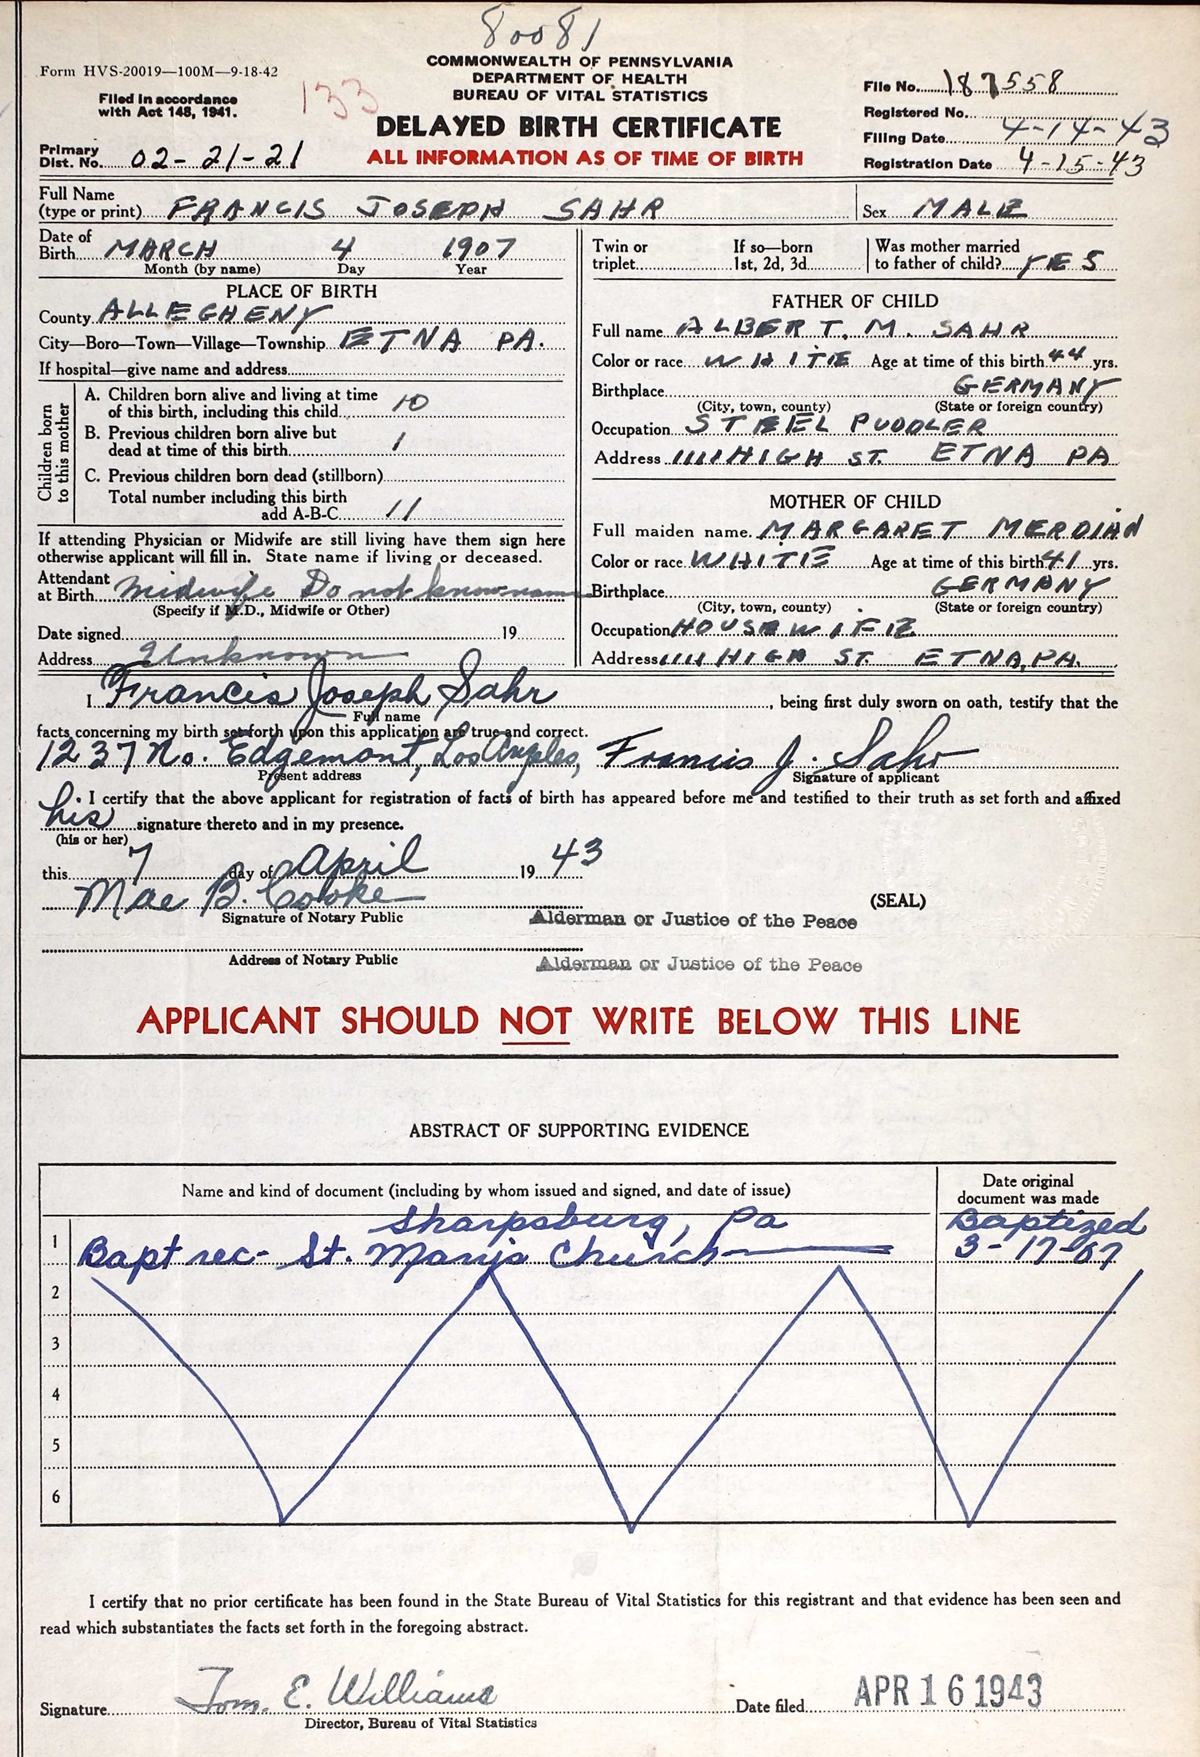 80081
Form HVS-20019—100M—9-18-42
COMMONWEALTH OF PENNSYLVANIA
DEPARTMENT OF HEALTH
BUREAU OF VITAL STATISTICS
Filed in accordance
with Act 148, 1941.
133
DELAYED BIRTH CERTIFICATE
ALL INFORMATION AS OF TIME OF BIRTH
Primary
Dist. No. 02-21-21
File No. 187558
Registered No.
Filing Date 4-14-43
Registration Date 4-15-43
Full Name
(type or print) FRANCIS JOSEPH SAHR
Sex MALE
Date of
Birth MARCH 4 1907
Month (by name) Day Year
Twin or
triplet
If so—born
1st, 2d, 3d
Was mother married
to father of child? YES
PLACE OF BIRTH
County ALLEGHENY
City—Boro—Town—Village—Township ETNA PA.
If hospital—give name and address
Children born
to this mother
A. Children born alive and living at time
of this birth, including this child 10
B. Previous children born alive but
dead at time of this birth 1
C. Previous children born dead (stillborn)
Total number including this birth
add A-B-C 11
If attending Physician or Midwife are still living have them sign here
otherwise applicant will fill in. State name if living or deceased.
Attendant
at Birth Midwife Do not know name
(Specify if M.D., Midwife or Other)
Date signed 19
Address Unknown
FATHER OF CHILD
Full name ALBERT. M. SAHR
Color or race WHITE Age at time of this birth 44 yrs.
Birthplace GERMANY
(City, town, county) (State or foreign country)
Occupation STEEL PUDDLER
Address 1111 HIGH ST. ETNA PA
MOTHER OF CHILD
Full maiden name. MARGARET MERDIAN
Color or race WHITE Age at time of this birth 41 yrs.
Birthplace GERMANY
(City, town, county) (State or foreign country)
Occupation HOUSEWIFE
Address 1111 HIGH ST. ETNA, PA.
I, Francis Joseph Sahr, being first duly sworn on oath, testify that the
Full name
facts concerning my birth set forth upon this application are true and correct.
1237 No. Edgemont, Los Angeles, Francis J. Sahr
Present address Signature of applicant
I certify that the above applicant for registration of facts of birth has appeared before me and testified to their truth as set forth and affixed
his signature thereto and in my presence.
(his or her)
this 7 day of April 19 43
Mae B. Cooke
Signature of Notary Public
Alderman or Justice of the Peace
(SEAL)
Address of Notary Public
Alderman or Justice of the Peace
APPLICANT SHOULD NOT WRITE BELOW THIS LINE
ABSTRACT OF SUPPORTING EVIDENCE
Name and kind of document (including by whom issued and signed, and date of issue)
Date original
document was made
Sharpsburg, Pa
1 Bapt rec- St. Marys Church
Baptized
3-17-07
2
3
4
5
6
I certify that no prior certificate has been found in the State Bureau of Vital Statistics for this registrant and that evidence has been seen and
read which substantiates the facts set forth in the foregoing abstract.
Signature Tom. E. Williams
Director, Bureau of Vital Statistics
Date filed APR 16 1943